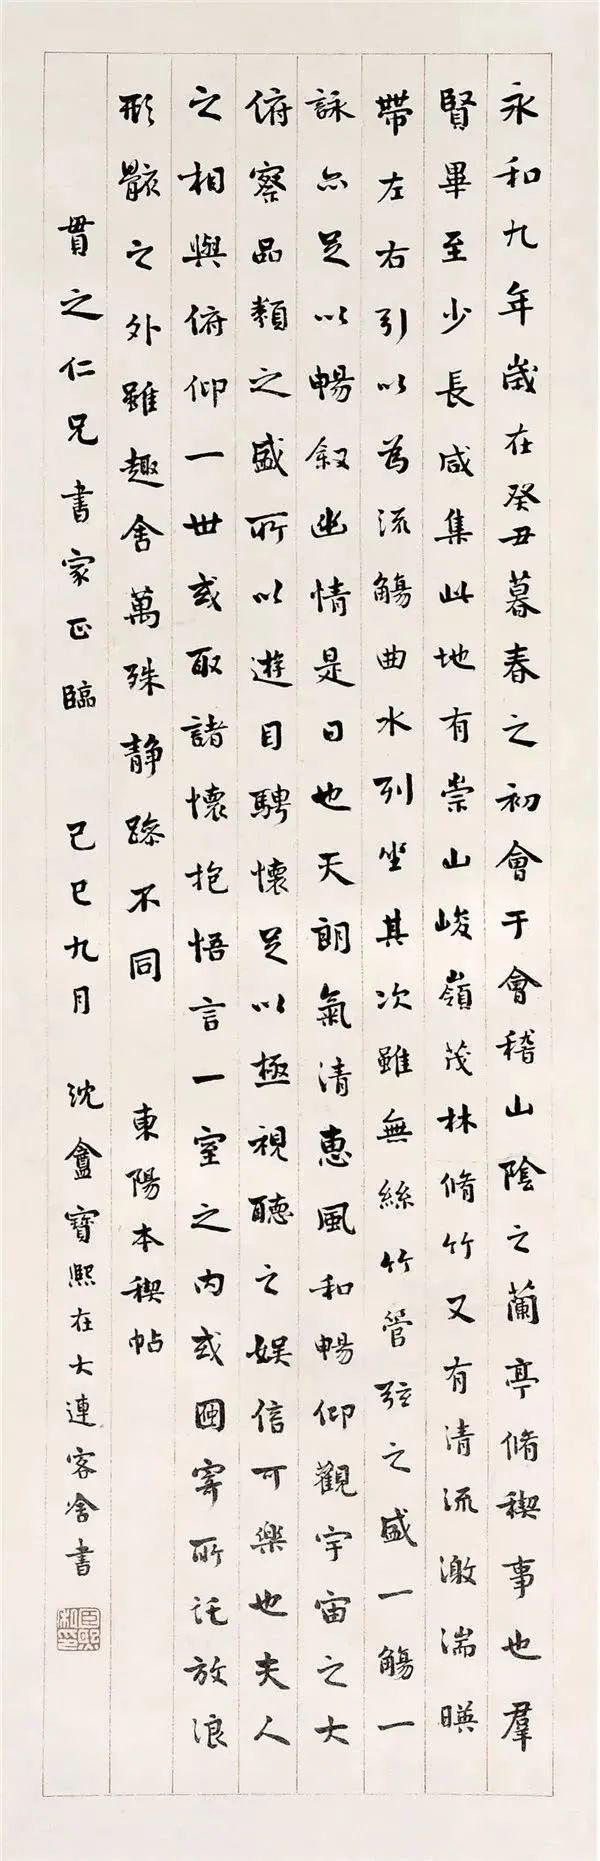 永和九年歲在癸丑暮春之初會于會稽山陰之蘭亭脩稧事也羣
賢畢至少長咸集此地有崇山峻嶺茂林脩竹又有清流激湍暎
帶左右引以為流觴曲水列坐其次雖無絲竹管弦之盛一觴一
詠亦足以暢敘幽情是日也天朗氣清惠風和暢仰觀宇宙之大
俯察品類之盛所以遊目騁懷足以極視聽之娛信可樂也夫人
之相與俯仰一世或取諸懷抱悟言一室之內或因寄所託放浪
形骸之外雖趣舍萬殊靜躁不同 東陽本稧帖
貫之仁兄書家正臨 己巳九月 沈盦寶熙在大連客舍書